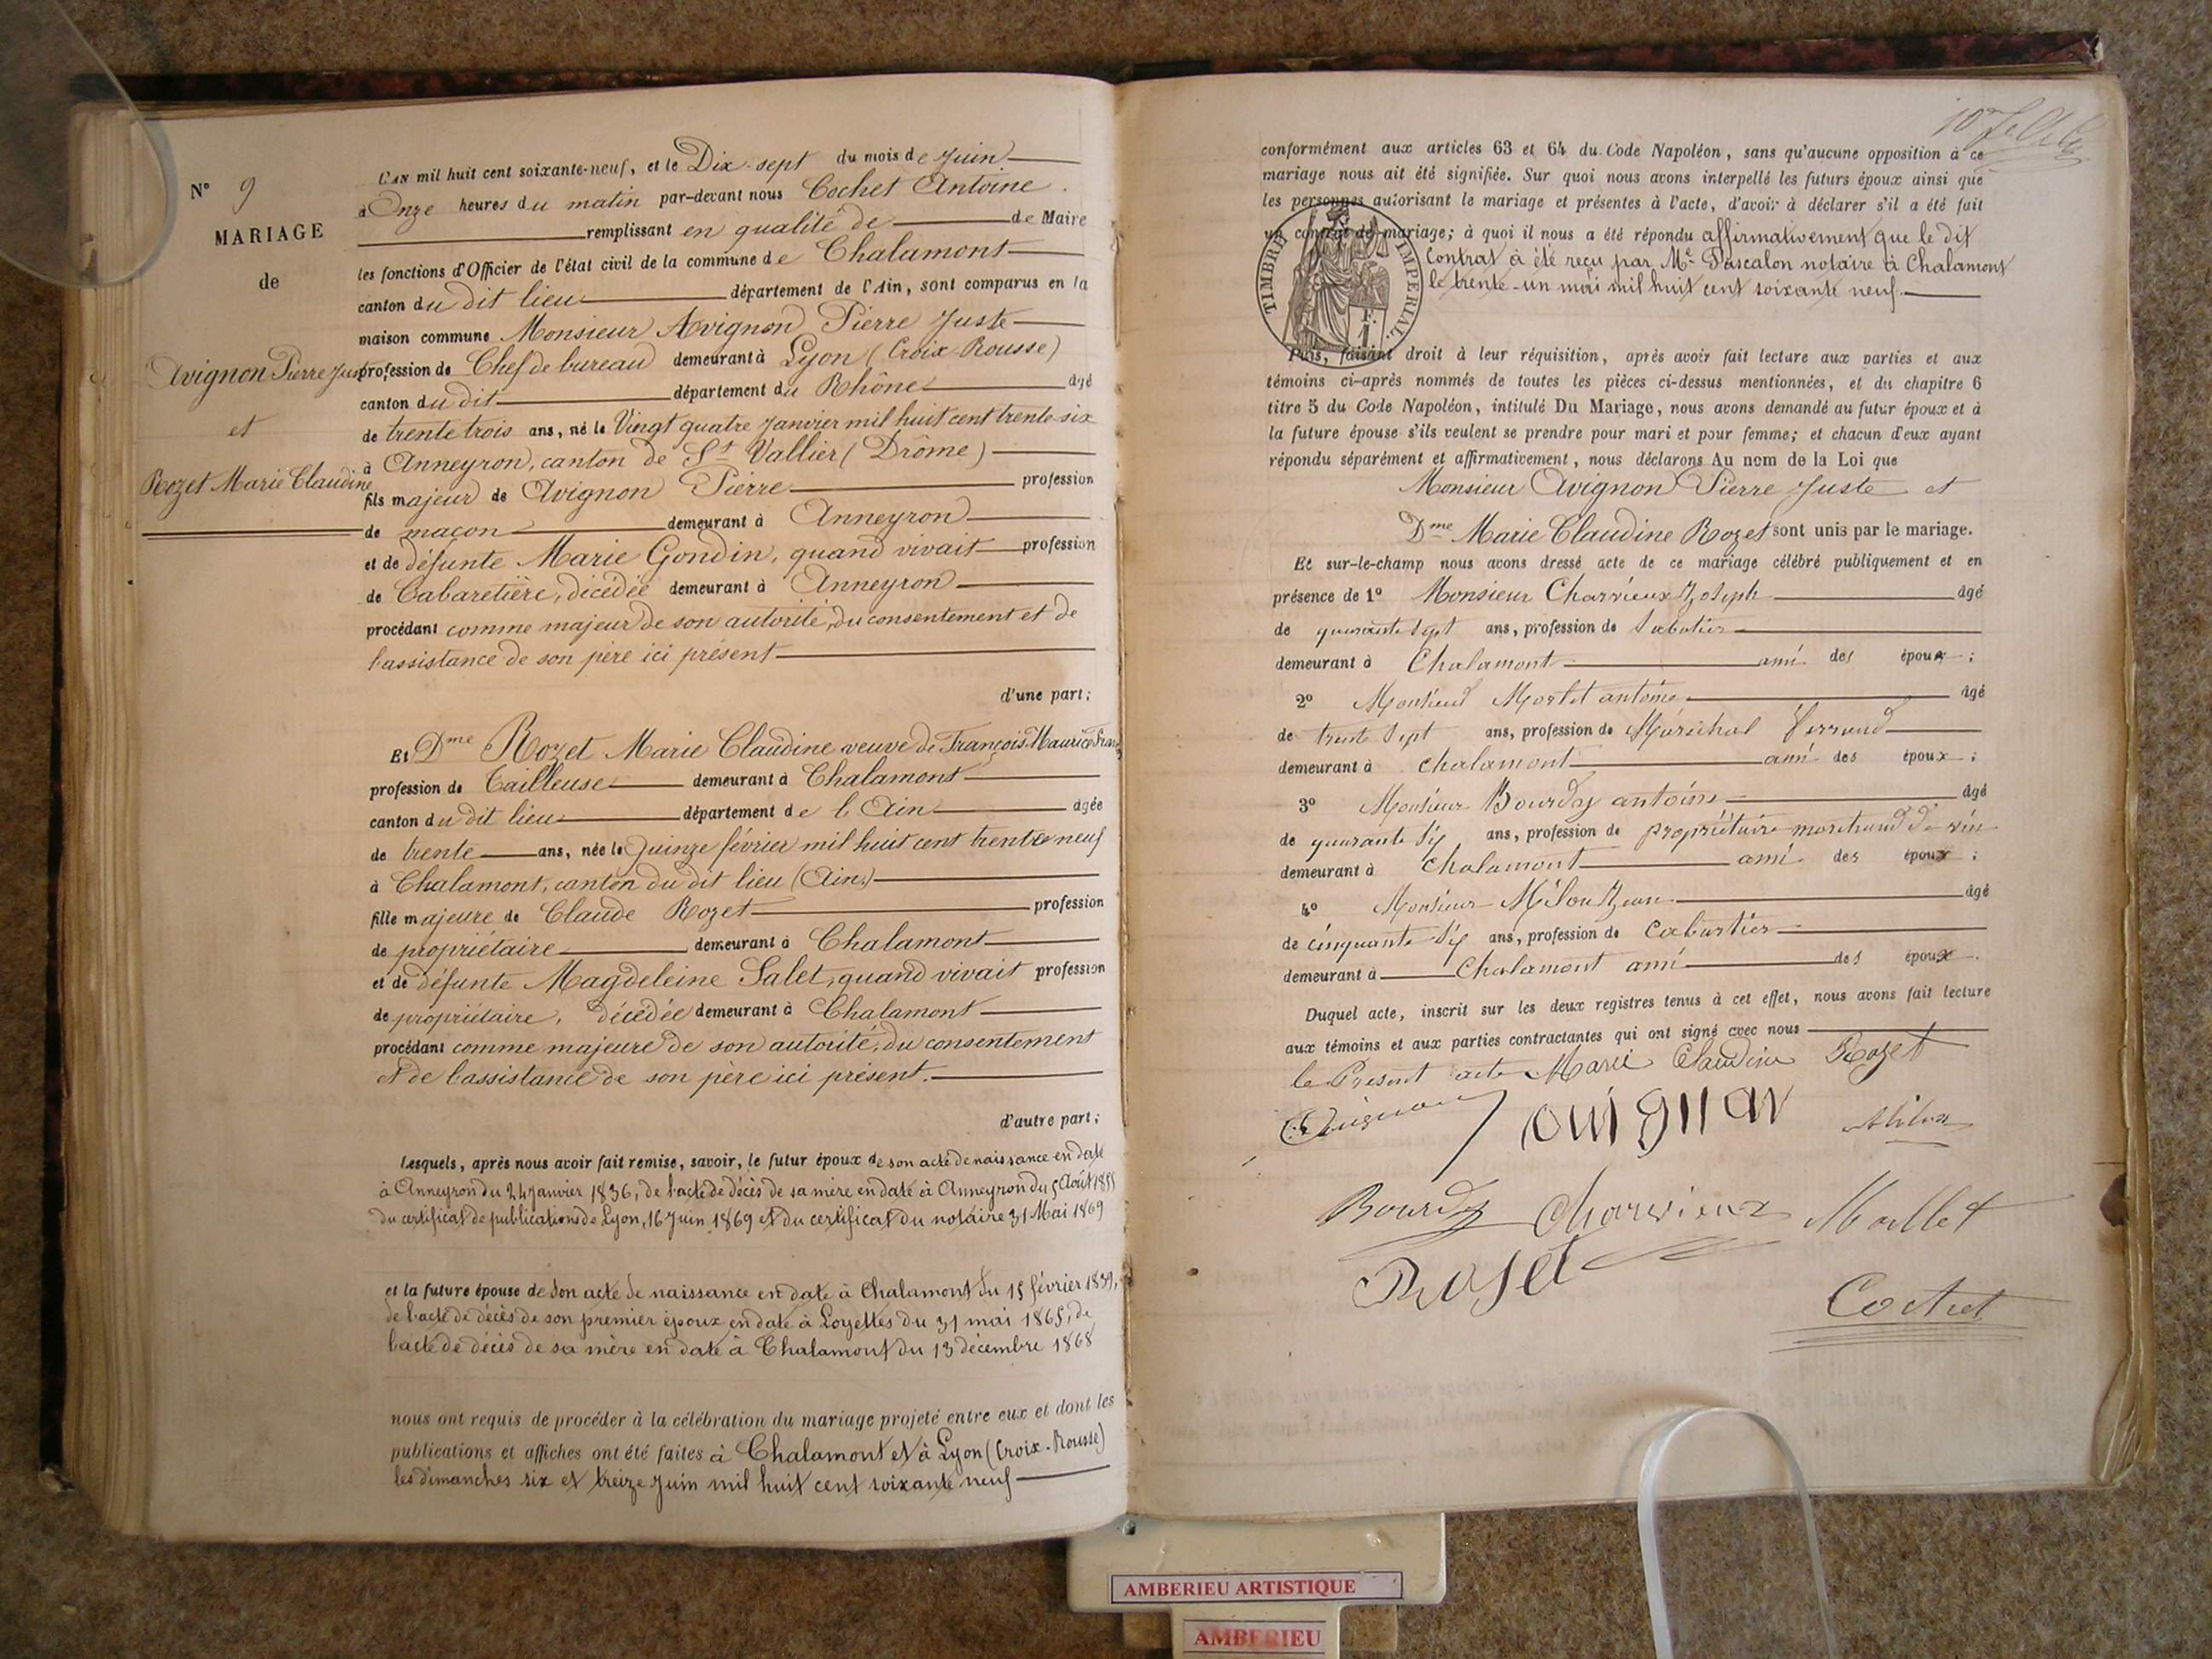 N° 9
MARIAGE
de
Avignon Pierre Juste
et
Rozet Marie Claudine
L'AN mil huit cent soixante-neuf, et le Dix-sept du mois de Juin
à Onze heures du matin par-devant nous Cochet Antoine
remplissant en qualité de de Maire
les fonctions d'Officier de l'état civil de la commune de Chalamont
canton du dit lieu département de l'Ain, sont comparus en la
maison commune Monsieur Avignon Pierre Juste
profession de Chef de bureau demeurant à Lyon (Croix-Rousse)
canton du dit département du Rhône âgé
de trente trois ans, né le Vingt quatre Janvier mil huit cent trente-six
à Anneyron, canton de St Vallier (Drôme)
fils majeur de Avignon Pierre profession
de maçon demeurant à Anneyron
et de défunte Marie Gondin, quand vivait profession
de Cabaretière, décédée demeurant à Anneyron
procédant comme majeur de son autorité, du consentement et de
l'assistance de son père ici présent
d'une part;
Et Dme Rozet Marie Claudine veuve de François Maurice
profession de Tailleuse demeurant à Chalamont
canton du dit lieu département de l'Ain âgée
de trente ans, née le Quinze février mil huit cent trente neuf
à Chalamont, canton du dit lieu (Ain)
fille majeure de Claude Rozet profession
de propriétaire demeurant à Chalamont
et de défunte Magdeleine Salet, quand vivait profession
de propriétaire, décédée demeurant à Chalamont
procédant comme majeure de son autorité, du consentement
et de l'assistance de son père ici présent.
d'autre part;
Lesquels, après nous avoir fait remise, savoir, le futur époux de son acte de naissance en date
à Anneyron du 24 Janvier 1836, de l'acte de décès de sa mère en date à Anneyron du 5 Août 1855
du certificat de publications de Lyon, 16 Juin 1869 et du certificat du notaire 31 Mai 1869
et la future épouse de son acte de naissance en date à Chalamont du 15 février 1839,
de l'acte de décès de son premier époux en date à Loyettes du 31 mai 1865, de
l'acte de décès de sa mère en date à Chalamont du 13 décembre 1868
nous ont requis de procéder à la célébration du mariage projeté entre eux et dont les
publications et affiches ont été faites à Chalamont et à Lyon (Croix-Rousse)
les dimanches six et treize Juin mil huit cent soixante neuf
conformément aux articles 63 et 64 du Code Napoléon, sans qu'aucune opposition à ce
mariage nous ait été signifiée. Sur quoi nous avons interpellé les futurs époux ainsi que
les personnes autorisant le mariage et présentes à l'acte, d'avoir à déclarer s'il a été fait
un contrat de mariage; à quoi il nous a été répondu affirmativement que le dit
Contrat à été reçu par Me Pascalon notaire à Chalamont
le trente-un mai mil huit cent soixante neuf.
TIMBRE IMPERIAL.
Puis, faisant droit à leur réquisition, après avoir fait lecture aux parties et aux
témoins ci-après nommés de toutes les pièces ci-dessus mentionnées, et du chapitre 6
titre 5 du Code Napoléon, intitulé Du Mariage, nous avons demandé au futur époux et à
la future épouse s'ils veulent se prendre pour mari et pour femme; et chacun d'eux ayant
répondu séparément et affirmativement, nous déclarons Au nom de la Loi que
Monsieur Avignon Pierre Juste et
Dme Marie Claudine Rozet sont unis par le mariage.
Et sur-le-champ nous avons dressé acte de ce mariage célébré publiquement et en
présence de 1° Monsieur Charvieux Joseph âgé
de quarante sept ans, profession de Sabotier
demeurant à Chalamont ami des époux;
2° Monsieur antoine âgé
de trente sept ans, profession de Maréchal ferrand
demeurant à Chalamont ami des époux;
3° Monsieur Bourdy antoine âgé
de quarante six ans, profession de propriétaire marchand de vin
demeurant à Chalamont ami des époux;
4° Monsieur Milou Jean âgé
de cinquante six ans, profession de Cabartier
demeurant à Chalamont ami des époux.
Duquel acte, inscrit sur les deux registres tenus à cet effet, nous avons fait lecture
aux témoins et aux parties contractantes qui ont signé avec nous
le Présent acte Marie Claudine Rozet
Avignon
Bourdy Charvieux Mollet
Rozet
Cochet
AMBERIEU ARTISTIQUE
AMBERIEU